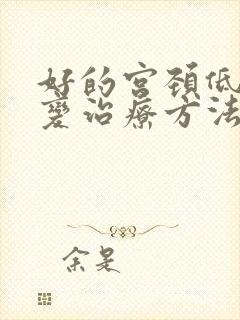 好的宫颈低
变治疗方法
余是